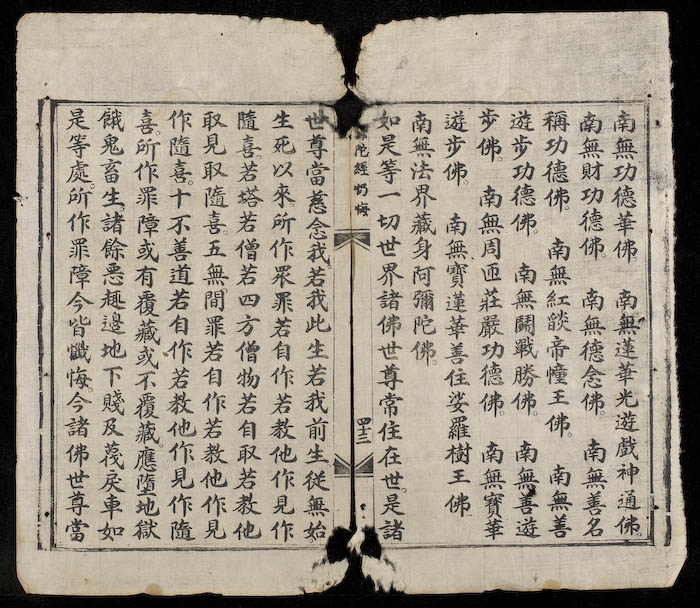 南無功德華佛　南無蓮華光遊戲神通佛。
南無財功德佛。　南無德念佛。　南無善名
稱功德佛。　南無紅燄帝憧王佛。　南無善
遊步功德佛。　南無鬪戰勝佛。　南無善遊
步佛。　南無周匝莊嚴功德佛。　南無寶華
遊步佛　南無寶蓮華善住娑羅樹王佛
南無法界藏身阿彌陀佛。
如是等一切世界諸佛世尊常住在世。是諸
陀經懺悔　四十三
世尊當慈念我。若我此生若我前生從無始
生死以來。所作眾罪若自作若教他作見作
隨喜。若塔若僧若四方僧物若自取若教他
取見取隨喜。五無間罪若自作若教他作見
作隨喜。十不善道若自作若教他作見作隨
喜。所作罪障或有覆藏或不覆藏。應墮地獄
餓鬼畜生。諸餘惡趣邊地下賤及蔑戾車如
是等處。所作罪障今皆懺悔。今諸佛世尊當